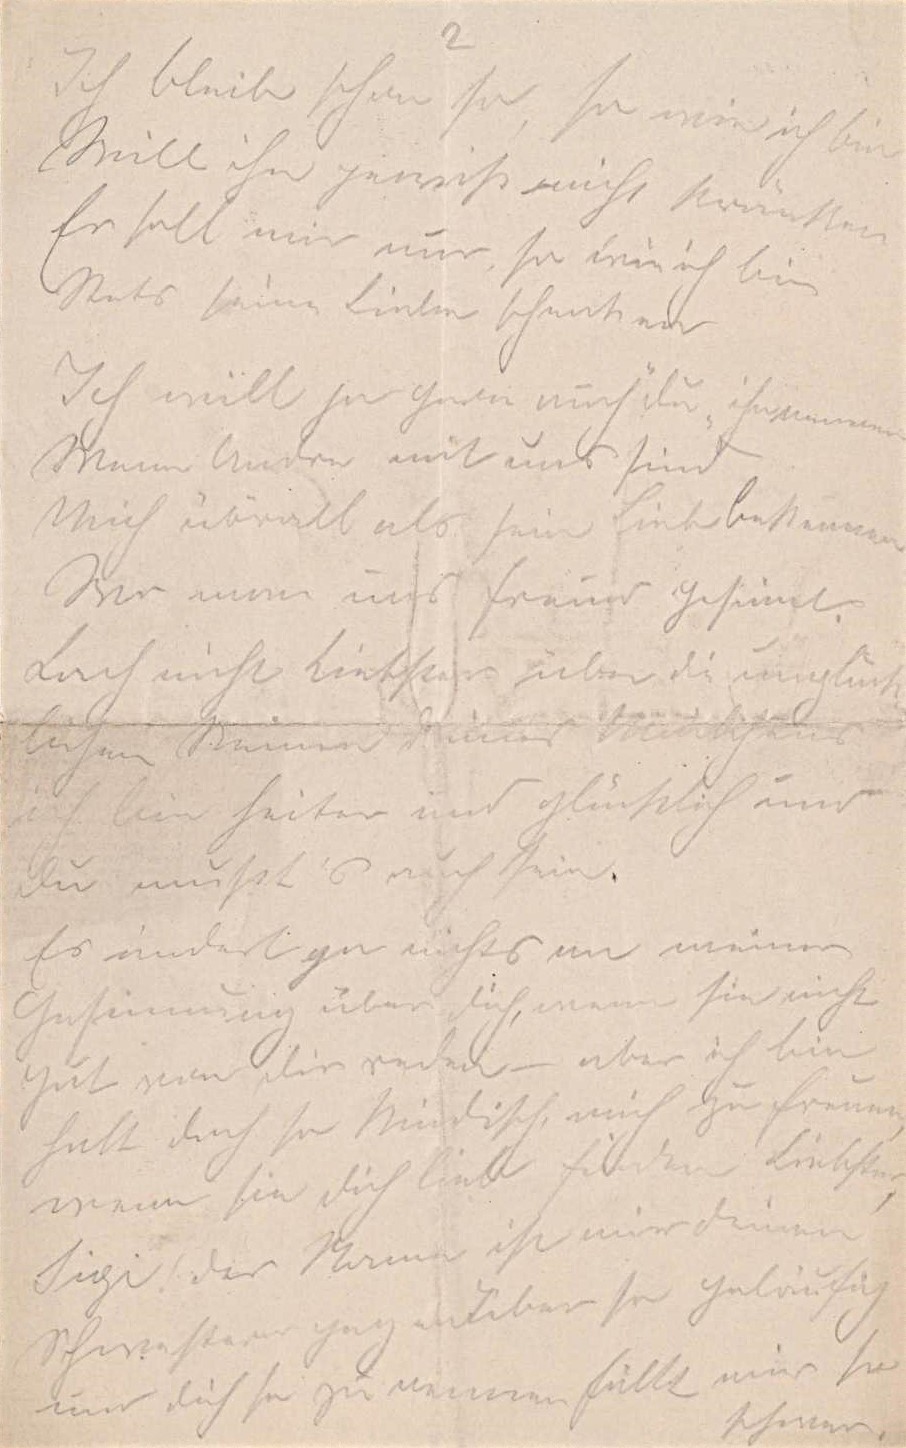 2
Ich bleibe schon so, so wie ich bin
Will ihn gewiß nicht kränken
Er soll mir nur, so wie ich bin
Stets seine Liebe schenken
Ich will ja gern auch "du" ihn nennen
Wenn Andre mit uns sind
Mich überall als sein Lieb bekennen
Wo man uns freund gesinnt.
Lach nicht Liebster über die unglück
lichen Reime Deines Mädchens
ich bin heiter und glücklich und
du mußt's auch sein.
Es ändert ja nichts an meiner
Gesinnung über dich, wenn sie nicht
gut von dir reden – aber ich bin
halt doch so kindisch, mich zu freuen,
wenn sie dich lieb finden Liebster,
Sigi! der Name ist mir deinen
Schwestern gegenüber so geläufig
und dich so zu nennen fällt mir so
schwer.